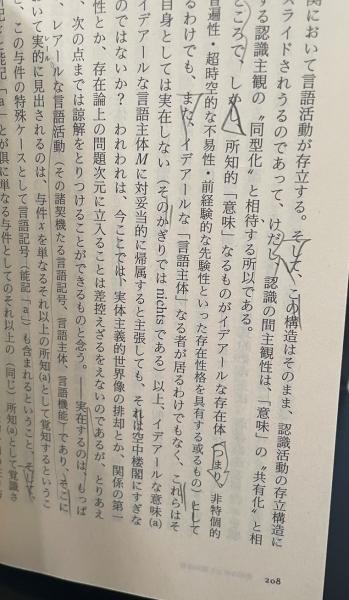 関において言語活動が存立する。そして、この構造はそのまま、認識活動の存立構造に
スライドされうるのであって、けだし、認識の間主観性は、「意味」の〝共有化〟と相
する認識主観の〝同型化〟と相待する所以である。
ところで、しかし、所知的「意味」なるものがイデアールな存在体（つまり、非特個的
普遍性・超時空的な不易性・前経験的な先験性といった存在性格を具有する或るもの）として
るわけでも、また、イデアールな「言語主体」なる者が居るわけでもなく、これらはそ
自身としては実在しない（そのかぎりでは nichts である）以上、イデアールな意味(a)
イデアールな言語主体Ｍに対妥当的に帰属すると主張しても、それは空中楼閣にすぎな
のではないか？　われわれは、今ここでは、実体主義的世界像の排却とか、関係の第一
性とか、存在論上の問題次元に立入ることは差控えざるをえないのであるが、とりあえ
、次の点までは諒解をとりつけることができるものと念う。──実在するのは、もっぱ
、レアールな言語活動（その諸契機たる言語記号、言語主体、言語機能）であり、そこに
いて実的に見出されるのは、与件xを単なるそれ以上の所知(a)として覚知するというこ
、この与件の特殊ケースとして言語記号（能記「a」）も含まれるということ、そして、
「a」とが倶に単なる与件としてのそれ以上の（同じ）所知(a)として覚識さ
208